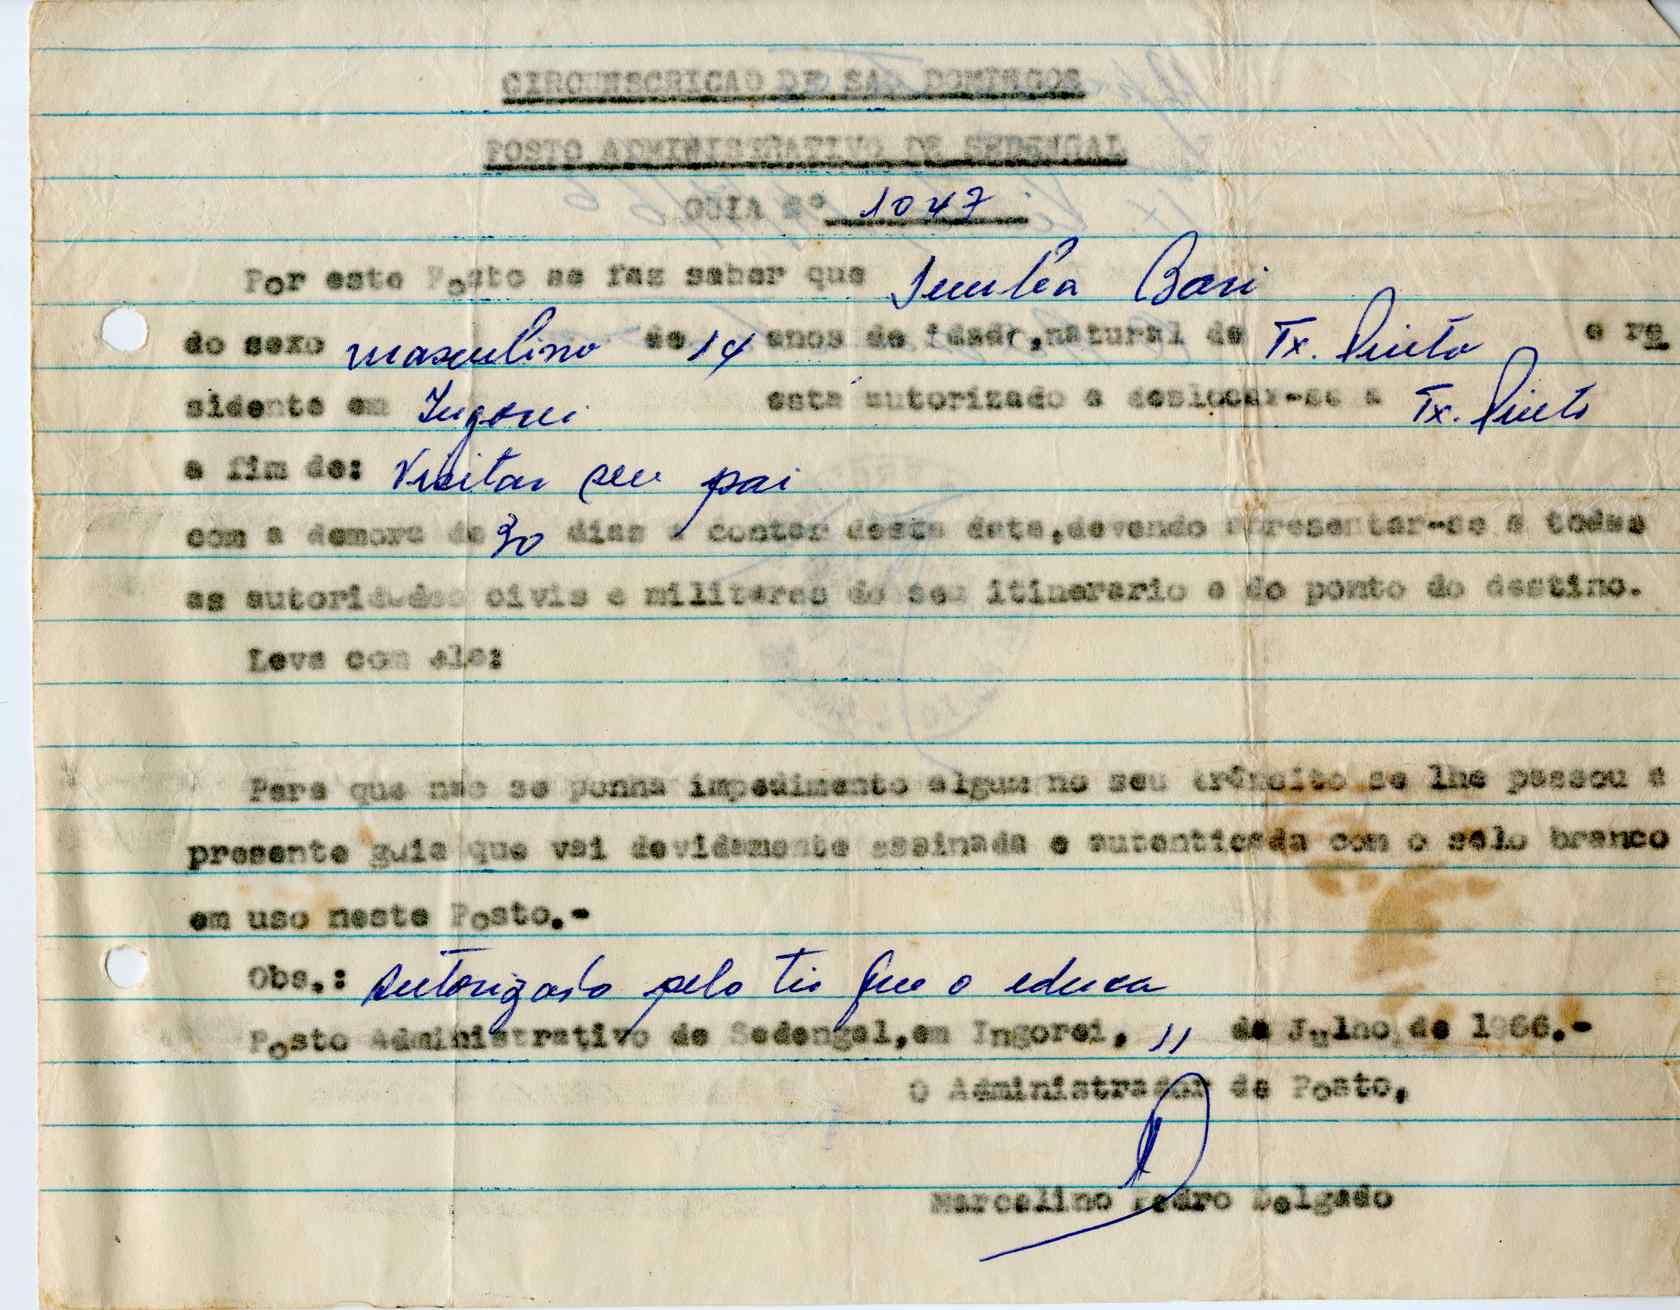 CIRCUNSCRICAO DE SAO DOMINGOS
POSTO ADMINISTRATIVO DE SEDENGAL
GUIA Nº 1047
Por este Posto se faz saber que Bari
do sexo masculino de 14 anos de idade, natural de Tx. Pinto e re
sidente em Ingorei está autorizado a deslocar-se a Tx. Pinto
a fim de: Visitar seu pai
com a demora de 30 dias a contar desta data, devendo apresentar-se a todas
as autoridades civis e militares do seu itinerario e do ponto do destino.
Leva com ele:
Para que nao se ponha impedimento algum no seu trânsito se lhe passou a
presente guia que vai devidamente assinada e autenticada com o selo branco
em uso neste Posto.-
Obs.: Autorizado pelo tio que o educa
Posto Administrativo de Sedengal, em Ingorei, 11 de Julho de 1966.-
O Administrador de Posto,
Marcelino Pedro Delgado